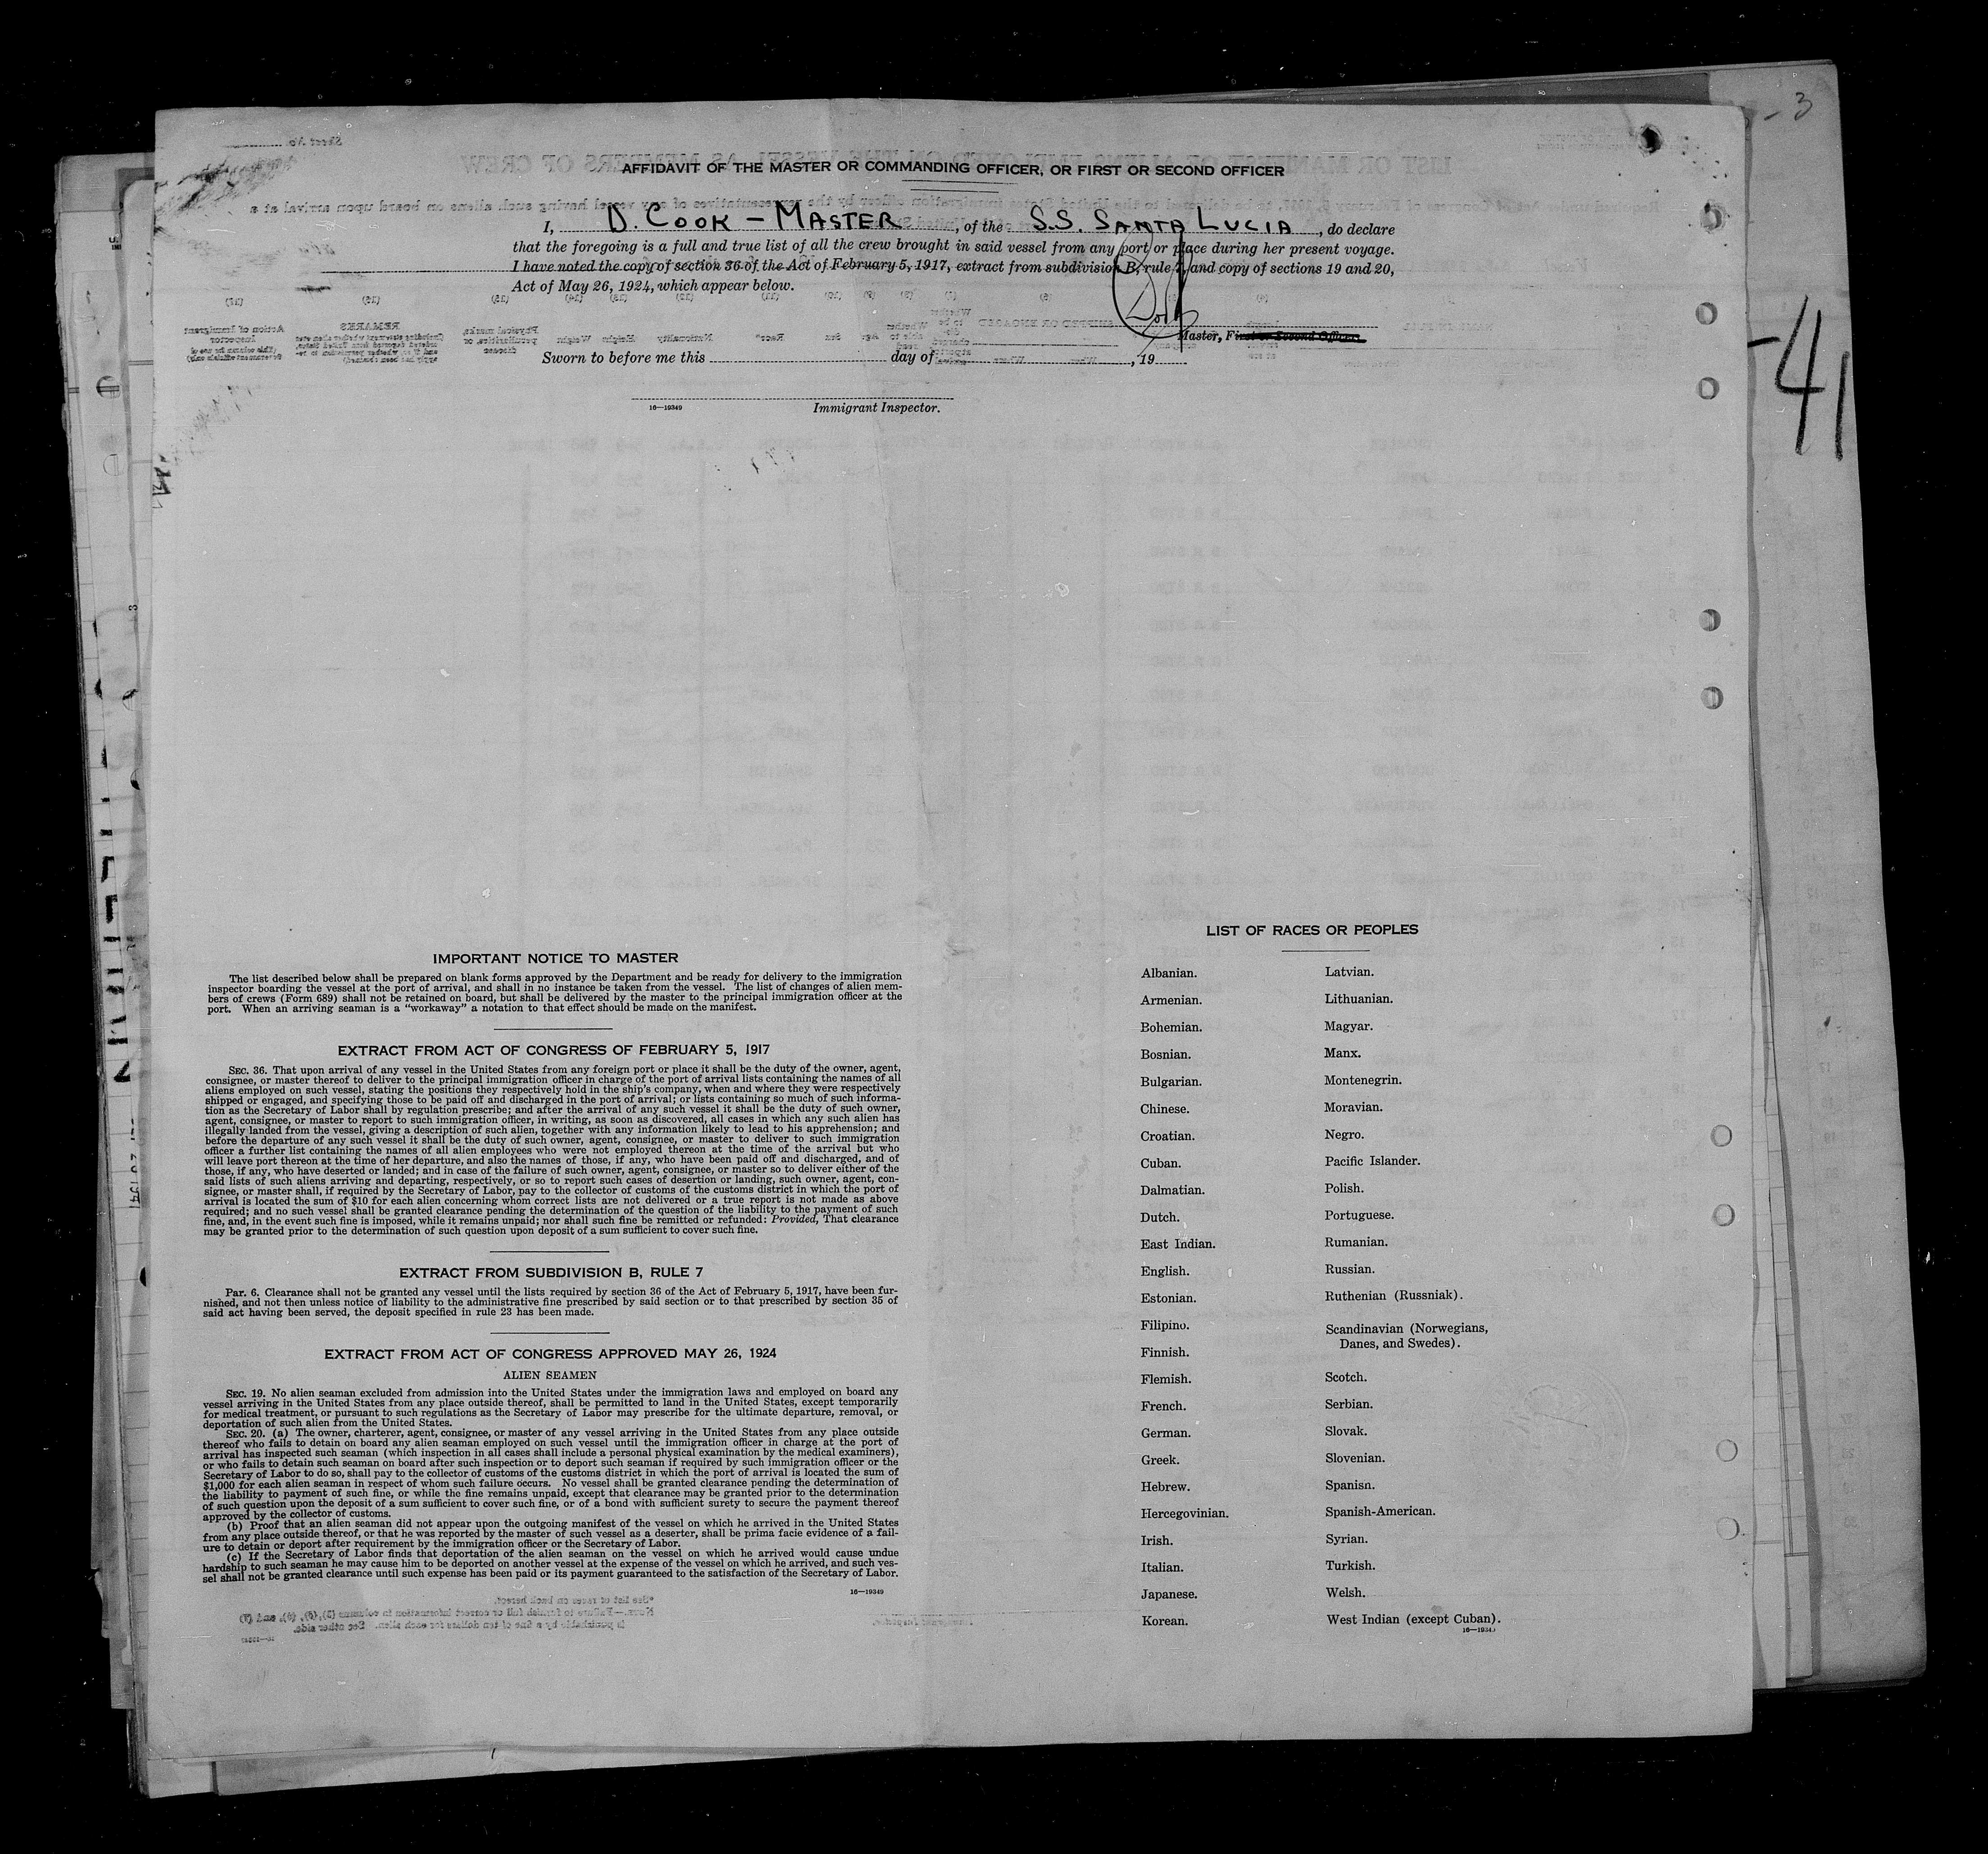 - 3
-41
AFFIDAVIT OF THE MASTER OR COMMANDING OFFICER, OR FIRST OR SECOND OFFICER
I, D. COOK – MASTER, of the S.S. SANTA LUCIA, do declare
that the foregoing is a full and true list of all the crew brought in said vessel from any port or place during her present voyage.
I have noted the copy of section 36 of the Act of February 5, 1917, extract from subdivision B, rule 7, and copy of sections 19 and 20,
Act of May 26, 1924, which appear below.
Master, First or Second Officer.
Sworn to before me this day of , 19
16—19349 Immigrant Inspector.
IMPORTANT NOTICE TO MASTER
The list described below shall be prepared on blank forms approved by the Department and be ready for delivery to the immigration
inspector boarding the vessel at the port of arrival, and shall in no instance be taken from the vessel. The list of changes of alien mem-
bers of crews (Form 689) shall not be retained on board, but shall be delivered by the master to the principal immigration officer at the
port. When an arriving seaman is a "workaway" a notation to that effect should be made on the manifest.
EXTRACT FROM ACT OF CONGRESS OF FEBRUARY 5, 1917
SEC. 36. That upon arrival of any vessel in the United States from any foreign port or place it shall be the duty of the owner, agent,
consignee, or master thereof to deliver to the principal immigration officer in charge of the port of arrival lists containing the names of all
aliens employed on such vessel, stating the positions they respectively hold in the ship's company, when and where they were respectively
shipped or engaged, and specifying those to be paid off and discharged in the port of arrival; or lists containing so much of such informa-
tion as the Secretary of Labor shall by regulation prescribe; and after the arrival of any such vessel it shall be the duty of such owner,
agent, consignee, or master to report to such immigration officer, in writing, as soon as discovered, all cases in which any such alien has
illegally landed from the vessel, giving a description of such alien, together with any information likely to lead to his apprehension; and
before the departure of any such vessel it shall be the duty of such owner, agent, consignee, or master to deliver to such immigration
officer a further list containing the names of all alien employees who were not employed thereon at the time of the arrival but who
will leave port thereon at the time of her departure, and also the names of those, if any, who have been paid off and discharged, and of
those, if any, who have deserted or landed; and in case of the failure of such owner, agent, consignee, or master so to deliver either of the
said lists of such aliens arriving and departing, respectively, or so to report such cases of desertion or landing, such owner, agent, con-
signee, or master shall, if required by the Secretary of Labor, pay to the collector of customs of the customs district in which the port of
arrival is located the sum of $10 for each alien concerning whom correct lists are not delivered or a true report is not made as above
required; and no such vessel shall be granted clearance pending the determination of the question of the liability to the payment of such
fine, and, in the event such fine is imposed, while it remains unpaid; nor shall such fine be remitted or refunded: Provided, That clearance
may be granted prior to the determination of such question upon deposit of a sum sufficient to cover such fine.
EXTRACT FROM SUBDIVISION B, RULE 7
Par. 6. Clearance shall not be granted any vessel until the lists required by section 36 of the Act of February 5, 1917, have been fur-
nished, and not then unless notice of liability to the administrative fine prescribed by said section or to that prescribed by section 35 of
said act having been served, the deposit specified in rule 23 has been made.
EXTRACT FROM ACT OF CONGRESS APPROVED MAY 26, 1924
ALIEN SEAMEN
SEC. 19. No alien seaman excluded from admission into the United States under the immigration laws and employed on board any
vessel arriving in the United States from any place outside thereof, shall be permitted to land in the United States, except temporarily
for medical treatment, or pursuant to such regulations as the Secretary of Labor may prescribe for the ultimate departure, removal, or
deportation of such alien from the United States.
SEC. 20. (a) The owner, charterer, agent, consignee, or master of any vessel arriving in the United States from any place outside
thereof who fails to detain on board any alien seaman employed on such vessel until the immigration officer in charge at the port of
arrival has inspected such seaman (which inspection in all cases shall include a personal physical examination by the medical examiners),
or who fails to detain such seaman on board after such inspection or to deport such seaman if required by such immigration officer or the
Secretary of Labor to do so, shall pay to the collector of customs of the customs district in which the port of arrival is located the sum of
$1,000 for each alien seaman in respect of whom such failure occurs. No vessel shall be granted clearance pending the determination of
the liability to payment of such fine, or while the fine remains unpaid, except that clearance may be granted prior to the determination
of such question upon the deposit of a sum sufficient to cover such fine, or of a bond with sufficient surety to secure the payment thereof
approved by the collector of customs.
(b) Proof that an alien seaman did not appear upon the outgoing manifest of the vessel on which he arrived in the United States
from any place outside thereof, or that he was reported by the master of such vessel as a deserter, shall be prima facie evidence of a fail-
ure to detain or deport after requirement by the immigration officer or the Secretary of Labor.
(c) If the Secretary of Labor finds that deportation of the alien seaman on the vessel on which he arrived would cause undue
hardship to such seaman he may cause him to be deported on another vessel at the expense of the vessel on which he arrived, and such ves-
sel shall not be granted clearance until such expense has been paid or its payment guaranteed to the satisfaction of the Secretary of Labor.
16—19349
LIST OF RACES OR PEOPLES
Albanian.
Armenian.
Bohemian.
Bosnian.
Bulgarian.
Chinese.
Croatian.
Cuban.
Dalmatian.
Dutch.
East Indian.
English.
Estonian.
Filipino.
Finnish.
Flemish.
French.
German.
Greek.
Hebrew.
Hercegovinian.
Irish.
Italian.
Japanese.
Korean.
Latvian.
Lithuanian.
Magyar.
Manx.
Montenegrin.
Moravian.
Negro.
Pacific Islander.
Polish.
Portuguese.
Rumanian.
Russian.
Ruthenian (Russniak).
Scandinavian (Norwegians,
Danes, and Swedes).
Scotch.
Serbian.
Slovak.
Slovenian.
Spanish.
Spanish-American.
Syrian.
Turkish.
Welsh.
West Indian (except Cuban).